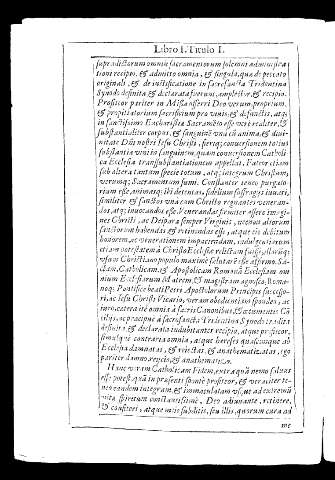 Libro I. Titulo I.
supradictorum omniũ sacramentorum solemni administra
tione recipio, & admitto omnia, & singula, quæ de peccato
originali, & de iustificatione in sacrosancta Tridentina
Synodo definita & declarata fuerunt, amplector, & recipio.
Profiteor pariter in Missa offerri Deo verum, proprium,
& propitiatorium sacrificium pro vivis, & defunctis, atq;
in sanctissimo Eucharistiæ Sacramẽto esse verè, realiter, &
substantialiter corpus, & sanguinẽ vnà cũ anima, & diui-
nitate Dñi nostri Iesu Christi, fieriq; conuersionem totius
substantiæ vini in sanguinem, quam conuersionem Catholi-
ca Ecclesia transubstantiationem appellat. Fateor etiam
sub altera tantum specie totum, atq; integrum Christum,
verumq; Sacramentum sumi. Constanter teneo purgato-
rium esse, animasq; ibi detentas, fidelium suffragijs iuuari,
similiter & sanctos vnà cum Christo regnantes veneran-
dos, atq; inuocandos esse. Venerandas
nes Christi, ac Deiparæ semper Virginis, necnon aliorum
sanctorum habendas & retinendas esse, atque eis debitum
honorem, ac venerationem impartiendam, indulgentiarum
etiam potestatem à Christo Ecclesiæ relictam fuisse, illarũq;
vsum Christiano populo maximè salutarẽ esse affirmo. Sã-
ctam, Catholicam, & Apostolicam Romanã Ecclesiam om
nium Ecclesiarum Matrem, & magistram agnosco, Roma-
noq; Pontifici beati Petri Apostolorum Principis successo-
ri, ac Iesu Christi Vicario, veram obedientiam spondeo, ac
iuro, cætera itẽ omnia à sacris Canonibus, & œcumenicis Cõ
cilijs, ac præcipuè à sacrosancta Tridentina Synodo tradita
definita & declarata indubitanter recipio, atque profiteor,
simulque contraria omnia, atque hæreses quascunque ab
Ecclesia damnatas, & reiectas & anathematizatas, ego
pariter damno, reijcio, & anathematizo.
Hanc veram Catholicam Fidem, extra quã nemo saluus
esse potest, quã in præsenti sponte profiteor, & veraciter te-
neo eandem integram & immaculatam vsque ad extremũ
vitæ spiritum constantissimè, Deo adiuuante, retinere,
& confiteri, atque meis subditis, seu illis, quorum cura ad
me